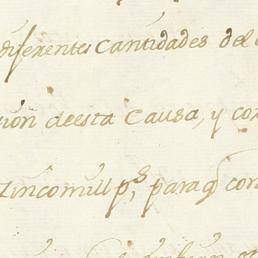 diferentes cantidades del
ion de esta Causa, y con
Zincomill p.s, para q con